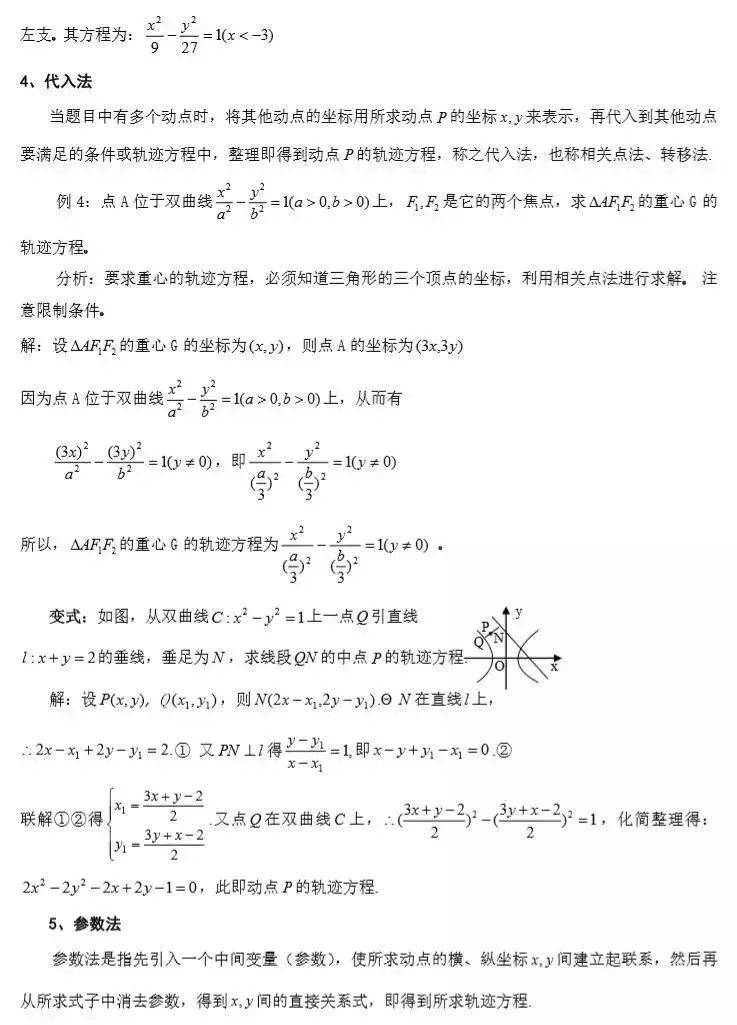 左支。其方程为：x²/9 − y²/27 = 1(x < −3)
4、代入法
当题目中有多个动点时，将其他动点的坐标用所求动点 P 的坐标 x, y 来表示，再代入到其他动点
要满足的条件或轨迹方程中，整理即得到动点 P 的轨迹方程，称之代入法，也称相关点法、转移法.
例 4：点 A 位于双曲线 x²/a² − y²/b² = 1(a > 0, b > 0) 上，F₁, F₂ 是它的两个焦点，求 ΔAF₁F₂ 的重心 G 的
轨迹方程。
分析：要求重心的轨迹方程，必须知道三角形的三个顶点的坐标，利用相关点法进行求解。 注
意限制条件。
解：设 ΔAF₁F₂ 的重心 G 的坐标为 (x, y)，则点 A 的坐标为 (3x,3y)
因为点 A 位于双曲线 x²/a² − y²/b² = 1(a > 0, b > 0) 上，从而有
(3x)²/a² − (3y)²/b² = 1(y ≠ 0)，即 x²/(a/3)² − y²/(b/3)² = 1(y ≠ 0)
所以，ΔAF₁F₂ 的重心 G 的轨迹方程为 x²/(a/3)² − y²/(b/3)² = 1(y ≠ 0) 。
变式：如图，从双曲线 C : x² − y² = 1 上一点 Q 引直线
l : x + y = 2 的垂线，垂足为 N，求线段 QN 的中点 P 的轨迹方程.
y
P
Q
N
O
x
解：设 P(x, y), Q(x₁, y₁)，则 N(2x − x₁,2y − y₁).Θ N 在直线 l 上，
∴ 2x − x₁ + 2y − y₁ = 2.① 又 PN ⊥ l 得 (y − y₁)/(x − x₁) = 1, 即 x − y + y₁ − x₁ = 0 .②
联解①②得 { x₁ = (3x + y − 2)/2
y₁ = (3y + x − 2)/2 .又点 Q 在双曲线 C 上，∴ ((3x + y − 2)/2)² − ((3y + x − 2)/2)² = 1，化简整理得：
2x² − 2y² − 2x + 2y − 1 = 0，此即动点 P 的轨迹方程.
5、参数法
参数法是指先引入一个中间变量（参数），使所求动点的横、纵坐标 x, y 间建立起联系，然后再
从所求式子中消去参数，得到 x, y 间的直接关系式，即得到所求轨迹方程.